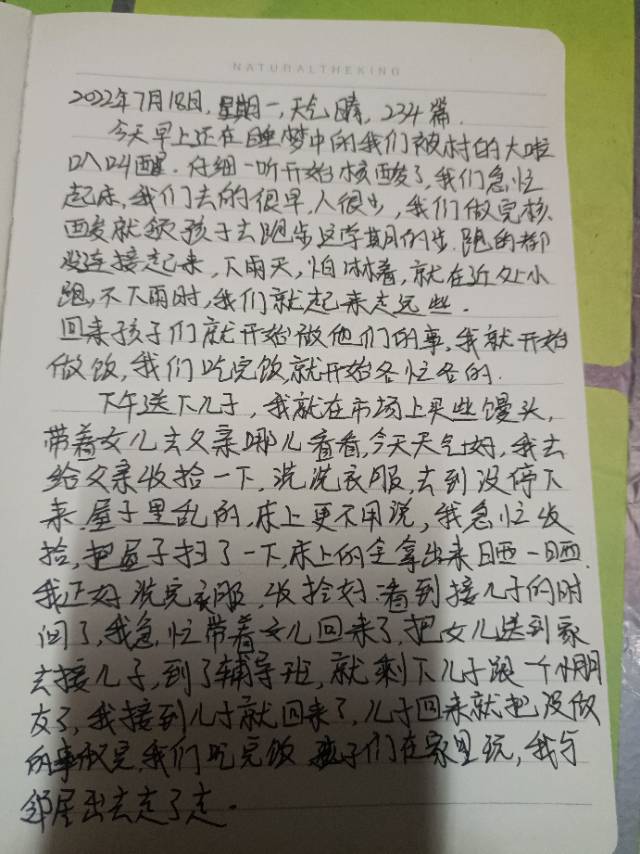 NATURALTHEKING
2022年7月18日，星期一，天气晴，234篇.
今天早上还在睡梦中的我们被村的大啦
叭叫醒.仔细一听开始核酸了，我们急忙
起床，我们去的很早，人很少，我们做完核
酸就领孩子去跑步这学期的步，跑的都
没连接起来，下雨天，怕淋着，就在近处小
跑，不下雨时，我们就起来走远些.
回来孩子们就开始做他们的事，我就开始
做饭，我们吃完饭，就开始各忙各的.
下午送下儿子，我就在市场上买些馒头，
带着女儿去父亲哪儿看看，今天天气好，我去
给父亲收拾一下，洗洗衣服，去到没停下
来，屋子里乱的，床上更不用说，我急忙收
拾，把屋子扫了一下，床上的全拿出来晒一晒.
我正好洗完衣服，收拾好.看到接儿子的时
间了，我急忙带着女儿回来了，把女儿送到家
去接儿子，到了辅导班，就剩下儿子跟一个小朋
友了，我接到儿子就回来了，儿子回来就把没做
的事做完，我们吃完饭 孩子们在家里玩，我与
邻居出去走了走.